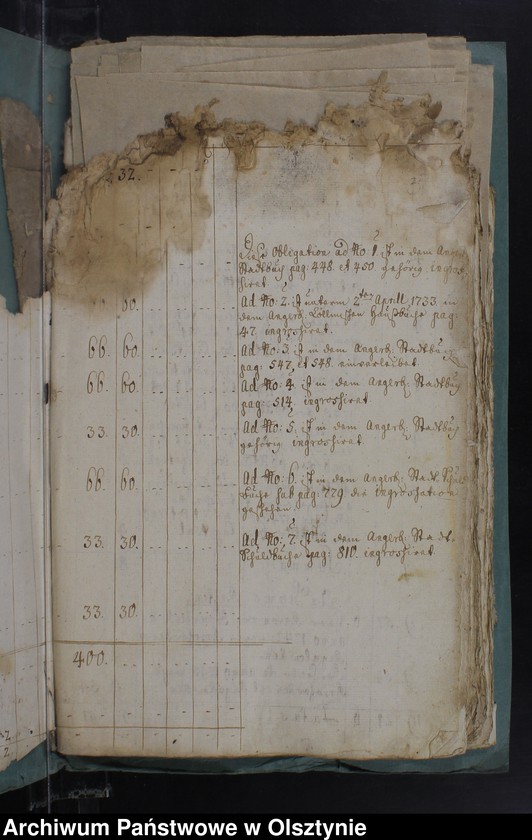 32.
Diese Obligation ad No: 1. ist in dem Anger
Stadtbuch pag: 448. et 450 gehörig ingros-
siret
00. Ad No: 2. ist unterm 2ten Aprill 1733 in
dem Angerb: Cöllmischen Hausbuche pag
47. ingrossiret.
66. 60. Ad No: 3. ist in dem Angerb: Stadtbuch
pag: 547, et 548. einverleibet
66. 60. Ad No: 4. ist in dem Angerb: Stadtbuch
pag: 514 ingrossiret
33. 30. Ad No: 5. ist in dem Angerb: Stadtbuch
gehörig ingrossiret
66. 60. Ad No: 6. ist in dem Angerb: Stadt Schuld
Buche sub pag: 779 die ingrossation
geschehen
33. 30. Ad No: 7. ist in dem Angerb: Stadt
Schuldbuche pag: 810. ingrossiret
33. 30.
400.
Archiwum Państwowe w Olsztynie